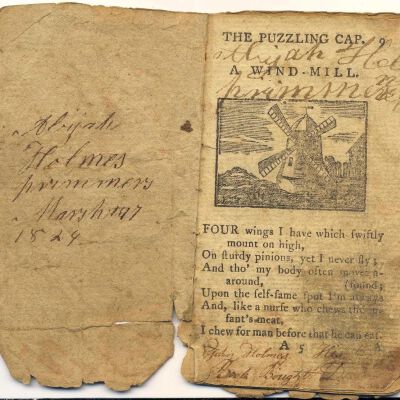 Abijah
Holmes
primmers
March
1824
THE PUZZLING CAP. 9
Abijah Hol
A WIND-MILL.
primmer
FOUR wings I have which ſwiftly
mount on high,
On ſturdy pinions, yet I never fly;
And tho' my body often moves a-
around, (found;
Upon the ſelf-ſame ſpot I'm always
And, like a nurſe who chews the in-
fant's meat,
I chew for man before that he can eat.
A 5 A
Holmes His
Book Bought